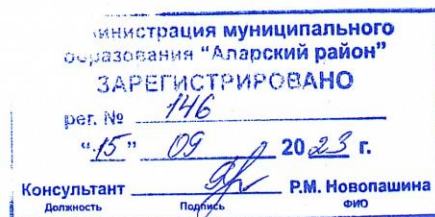 министрация муниципального
образования "Аларский район"
ЗАРЕГИСТРИРОВАНО
рег. № 146
"15" 09 2023 г.
Консультант Р.М. Новопашина
Должность Подпись ФИО